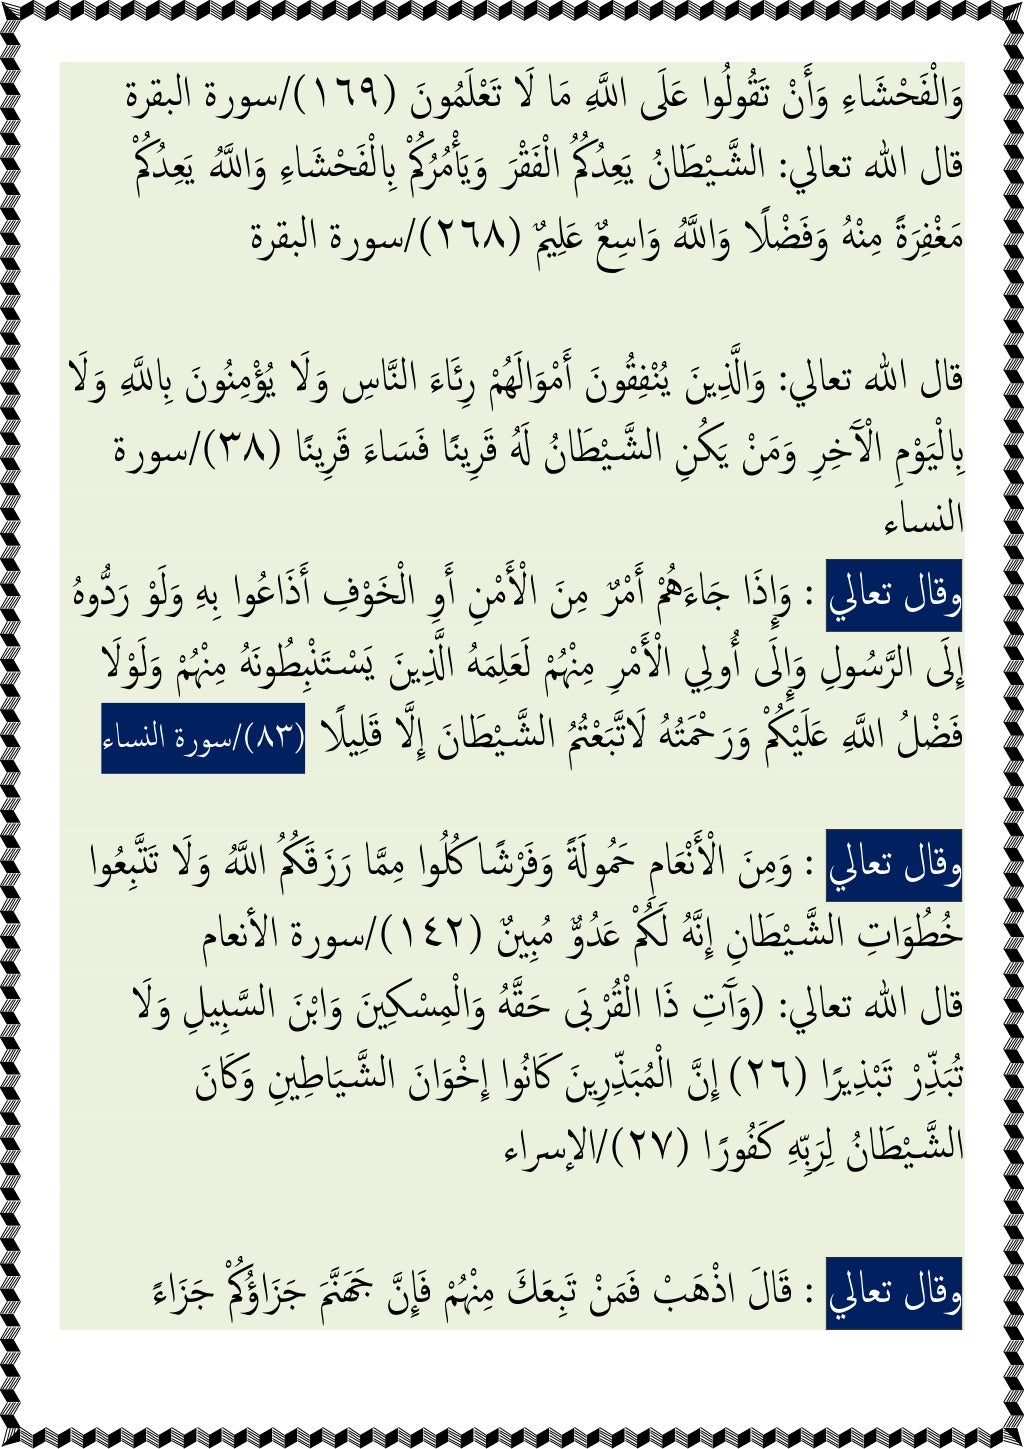 وَالْفَحْشَاءِ وَأَنْ تَقُولُوا عَلَى اللَّهِ مَا لَا تَعْلَمُونَ (١٦٩)/سورة البقرة
قال الله تعالي: الشَّيْطَانُ يَعِدُكُمُ الْفَقْرَ وَيَأْمُرُكُمْ بِالْفَحْشَاءِ وَاللَّهُ يَعِدُكُمْ
مَغْفِرَةً مِنْهُ وَفَضْلًا وَاللَّهُ وَاسِعٌ عَلِيمٌ (٢٦٨)/سورة البقرة
قال الله تعالي: وَالَّذِينَ يُنْفِقُونَ أَمْوَالَهُمْ رِئَاءَ النَّاسِ وَلَا يُؤْمِنُونَ بِاللَّهِ وَلَا
بِالْيَوْمِ الْآَخِرِ وَمَنْ يَكُنِ الشَّيْطَانُ لَهُ قَرِينًا فَسَاءَ قَرِينًا (٣٨)/سورة
النساء
وقال تعالي : وَإِذَا جَاءَهُمْ أَمْرٌ مِنَ الْأَمْنِ أَوِ الْخَوْفِ أَذَاعُوا بِهِ وَلَوْ رَدُّوهُ
إِلَى الرَّسُولِ وَإِلَى أُولِي الْأَمْرِ مِنْهُمْ لَعَلِمَهُ الَّذِينَ يَسْتَنْبِطُونَهُ مِنْهُمْ وَلَوْلَا
فَضْلُ اللَّهِ عَلَيْكُمْ وَرَحْمَتُهُ لَاتَّبَعْتُمُ الشَّيْطَانَ إِلَّا قَلِيلًا (٨٣)/سورة النساء
وقال تعالي : وَمِنَ الْأَنْعَامِ حَمُولَةً وَفَرْشًا كُلُوا مِمَّا رَزَقَكُمُ اللَّهُ وَلَا تَتَّبِعُوا
خُطُوَاتِ الشَّيْطَانِ إِنَّهُ لَكُمْ عَدُوٌّ مُبِينٌ (١٤٢)/سورة الأنعام
قال الله تعالي: (وَآَتِ ذَا الْقُرْبَى حَقَّهُ وَالْمِسْكِينَ وَابْنَ السَّبِيلِ وَلَا
تُبَذِّرْ تَبْذِيرًا (٢٦) إِنَّ الْمُبَذِّرِينَ كَانُوا إِخْوَانَ الشَّيَاطِينِ وَكَانَ
الشَّيْطَانُ لِرَبِّهِ كَفُورًا (٢٧)/الإسراء
وقال تعالي : قَالَ اذْهَبْ فَمَنْ تَبِعَكَ مِنْهُمْ فَإِنَّ جَهَنَّمَ جَزَاؤُكُمْ جَزَاءً